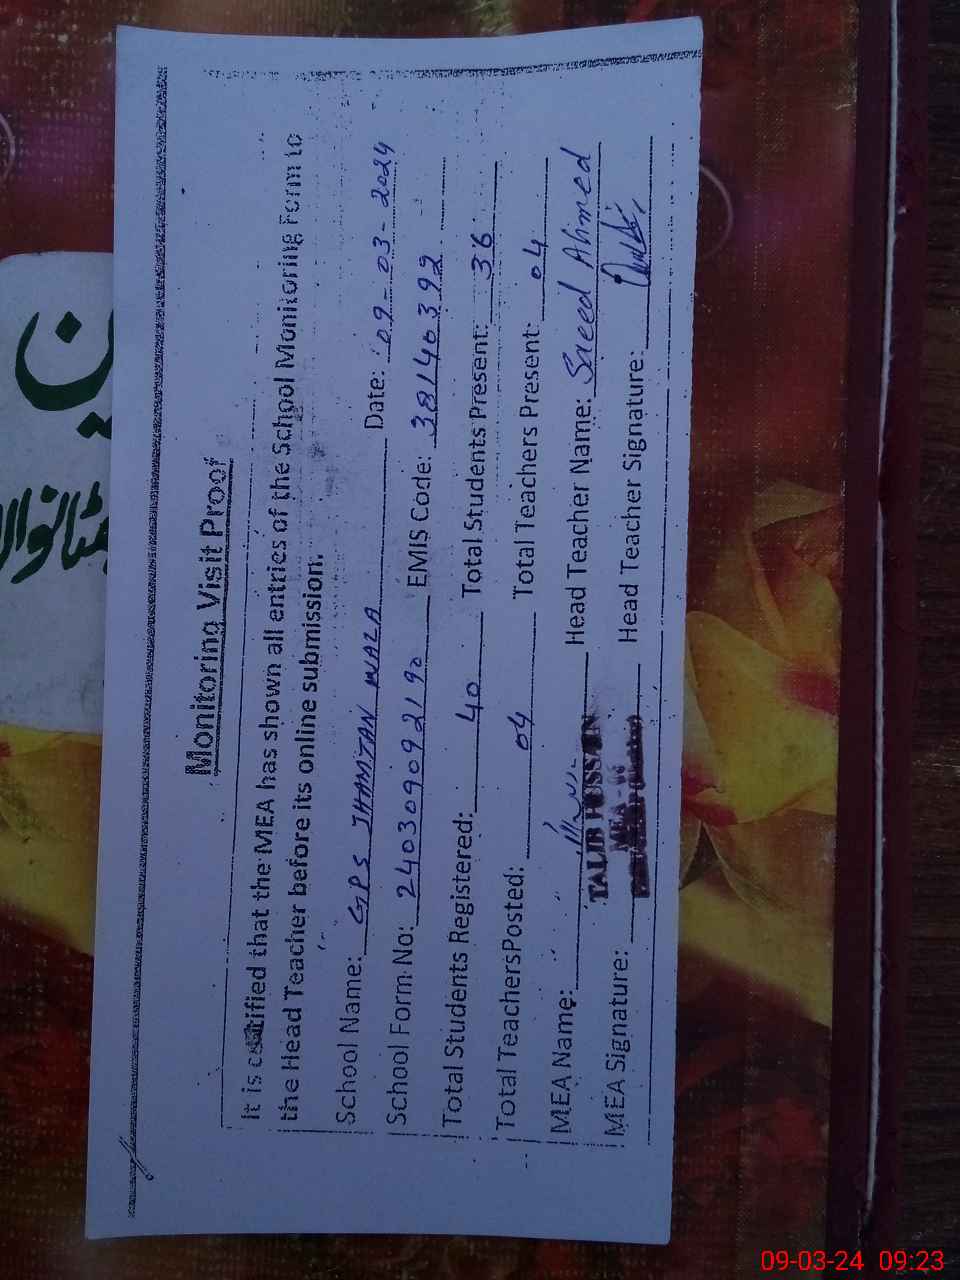 Monitoring Visit Proof
It is certified that the MEA has shown all entries of the School Monitoring Form to
the Head Teacher before its online submission.
School Name: GPS JHAMTAN WALA Date: 09-03-2024
School Form No: 240309092190 EMIS Code: 38140392
Total Students Registered: 40 Total Students Present: 36
Total TeachersPosted: 04 Total Teachers Present: 04
MEA Name: TALIB HUSSAIN Head Teacher Name: Saeed Ahmed
MEA Signature: MEA Head Teacher Signature:
09-03-24 09:23